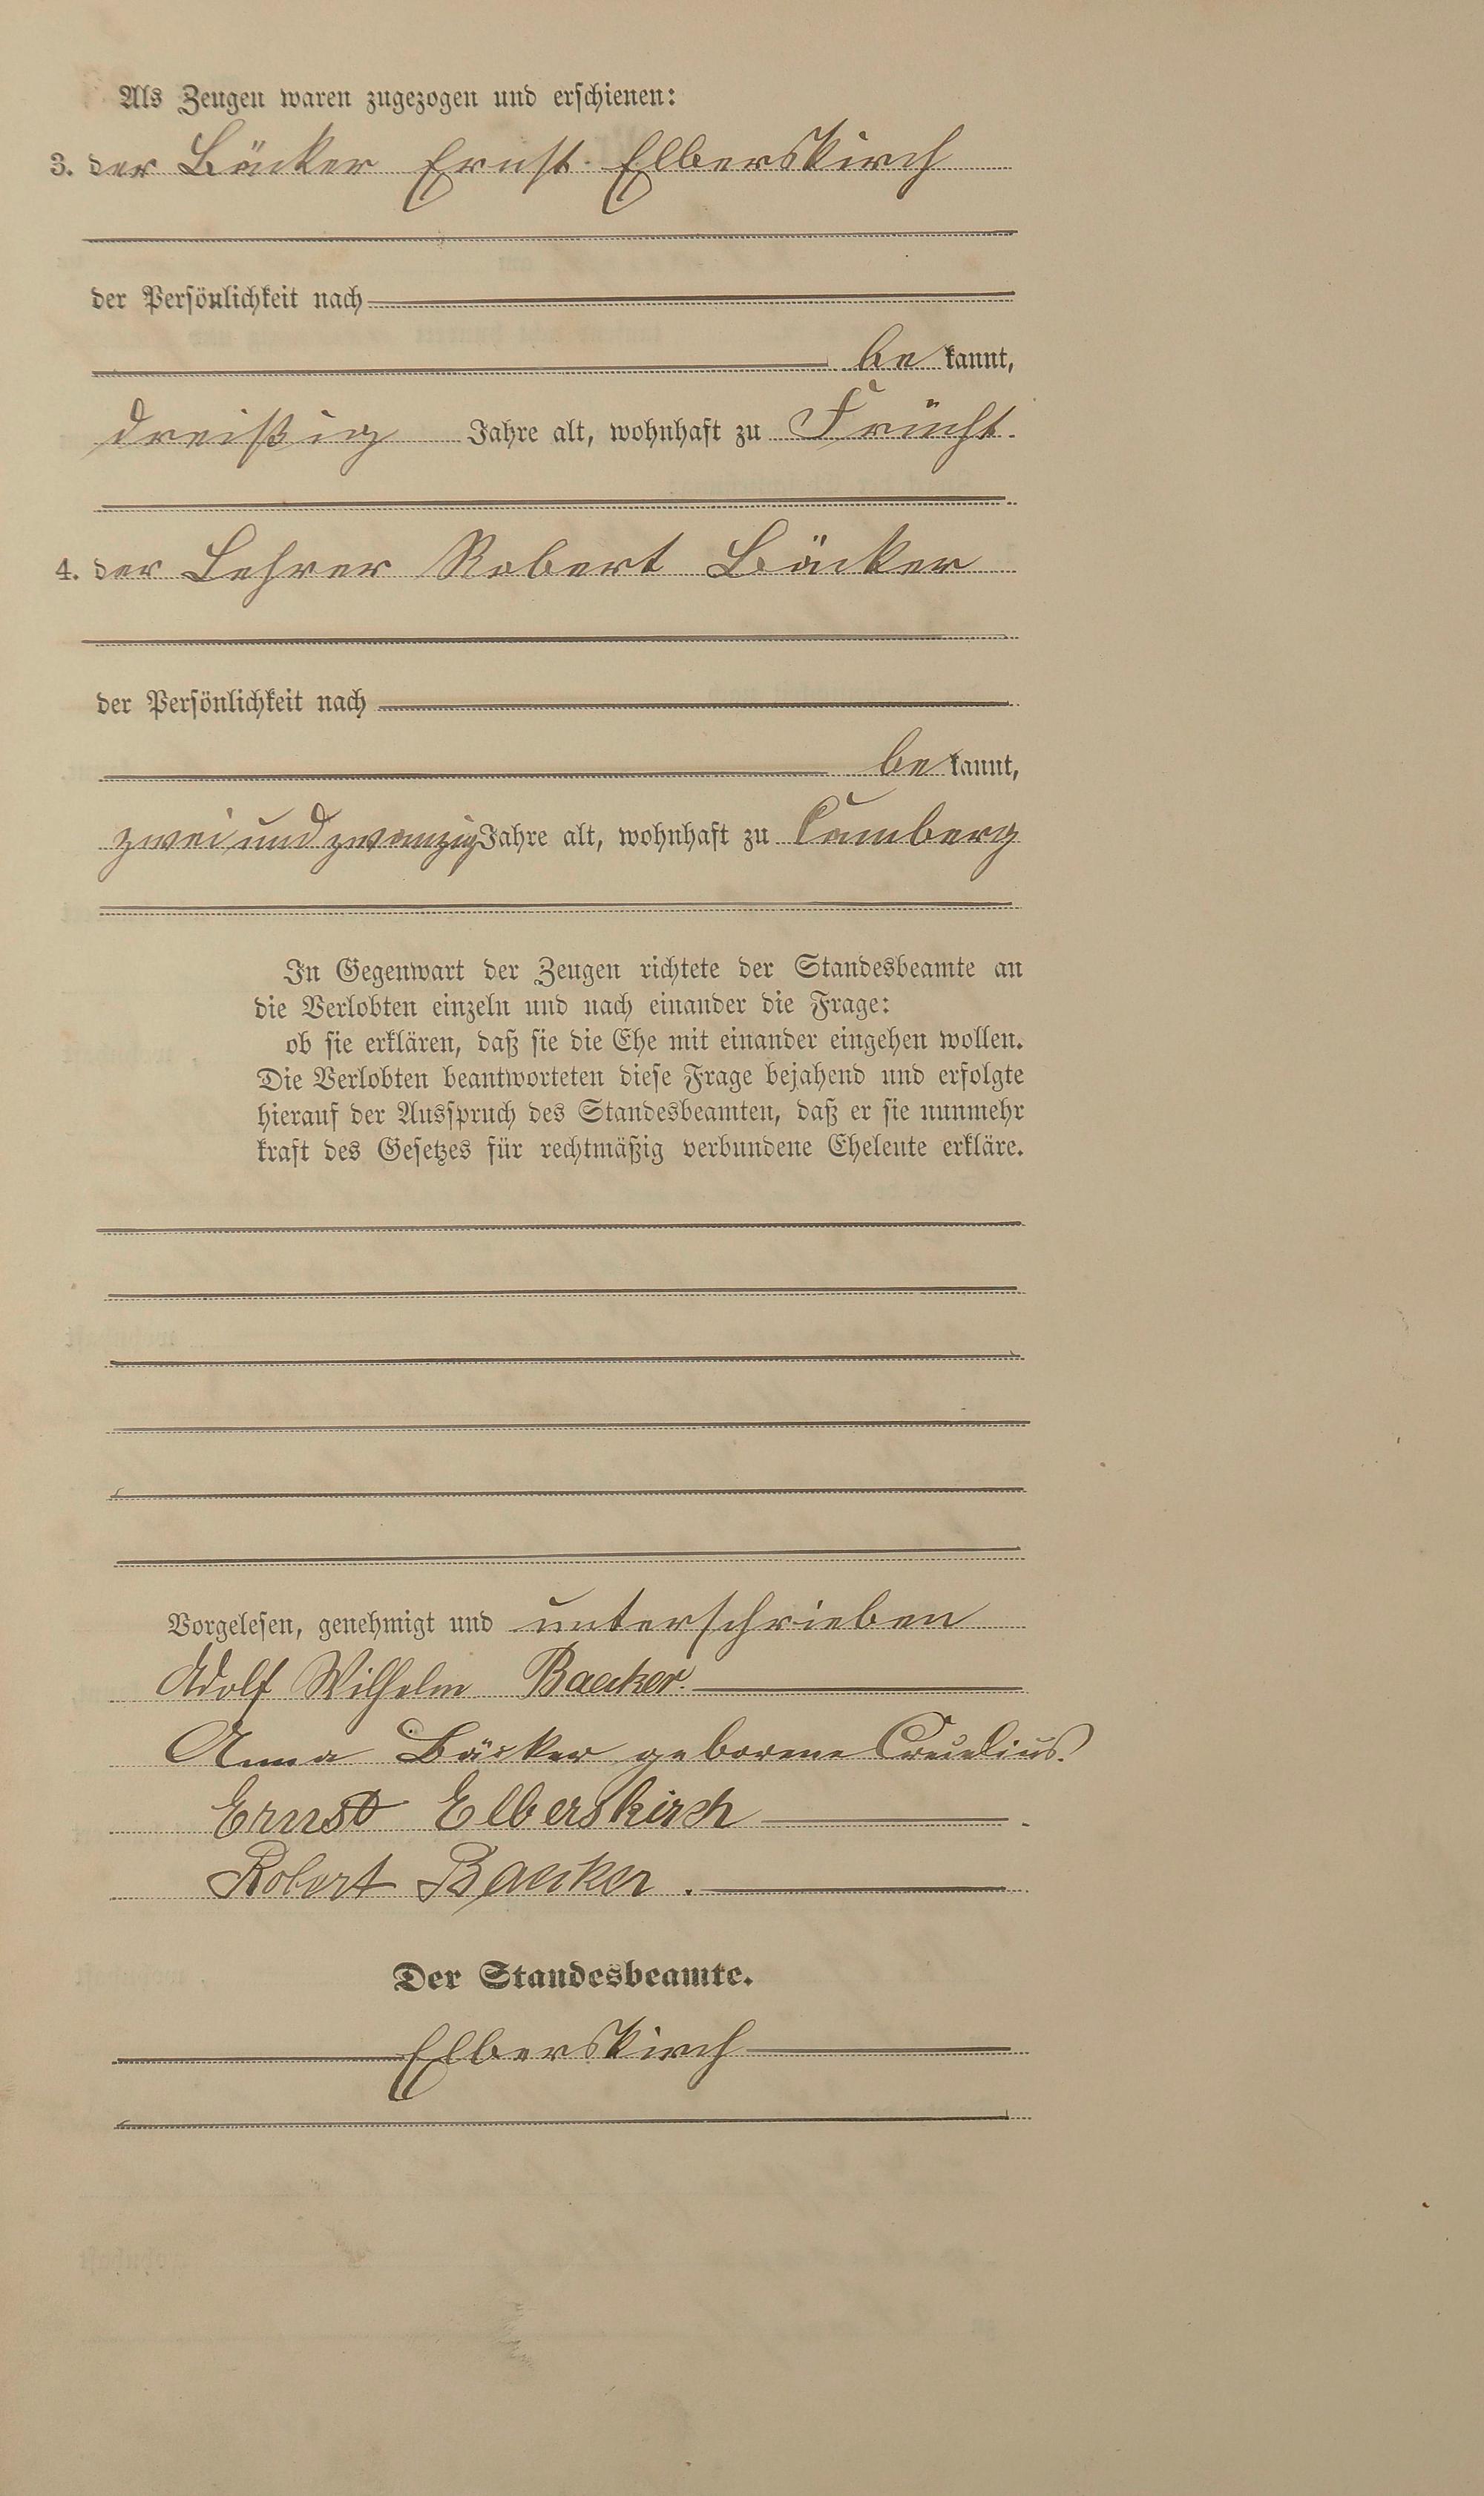 Als Zeugen waren zugezogen und erschienen:
3. der Bäcker Ernst Elberskirch
der Persönlichkeit nach
be kannt,
dreißig Jahre alt, wohnhaft zu Frücht.
4. der Lehrer Robert Bäcker
der Persönlichkeit nach
be kannt,
zwei und zwanzig Jahre alt, wohnhaft zu Camberg
In Gegenwart der Zeugen richtete der Standesbeamte an
die Verlobten einzeln und nach einander die Frage:
ob sie erklären, daß sie die Ehe mit einander eingehen wollen.
Die Verlobten beantworteten diese Frage bejahend und erfolgte
hierauf der Ausspruch des Standesbeamten, daß er sie nunmehr
kraft des Gesetzes für rechtmäßig verbundene Eheleute erkläre.
Vorgelesen, genehmigt und unterschrieben
Adolf Wilhelm Baecker.
Anna Bäcker geborene Crecelius.
Ernst Elberskirch
Robert Baecker.
Der Standesbeamte.
Elberskirch